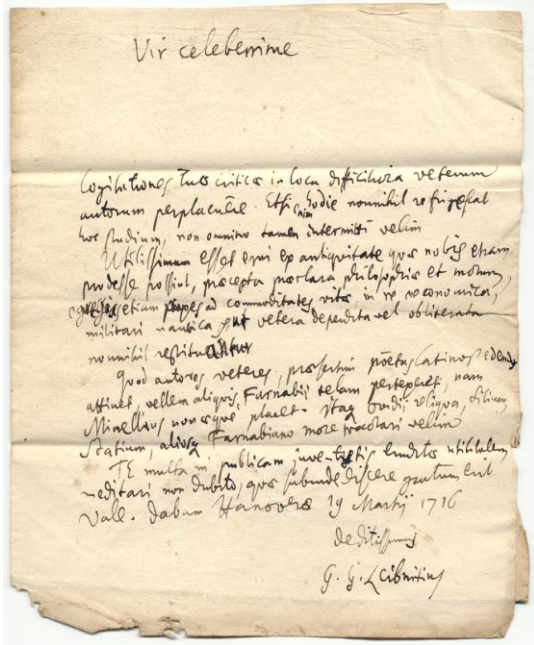 Vir celeberrime
Cogitationes tuas criticas in loca difficiliora veterum
autorum perplacuêre. Etsi enim hodie nonnihil refrigescat
hoc studium, non omnino tamen intermitti velim
Utilissimum esset erui ex antiquitate quae nobis etiam
prodesse possint, praecepta praeclara philosophiae et morum,
etiam ad commoditates vitae, in re oeconomica,
militari nautica vetera deperdita vel obliterata
nonnihil
Quod autores veteres, praesertim poëtas latinos edendos
attinet, vellem aliquis Farnabii telam pertexeret, nam
Minellius non aeque placet. Itaque Ovidii reliqua, Silium,
Statium, aliosque Farnabiano more tractari velim
TE multa in publicam juventutis eruditae utilitatem
meditari non dubito, quae subinde discere gratum erit
Vale. dabam Hanoverae 19 Martij 1716
deditissimus
G. G. Leibnitius